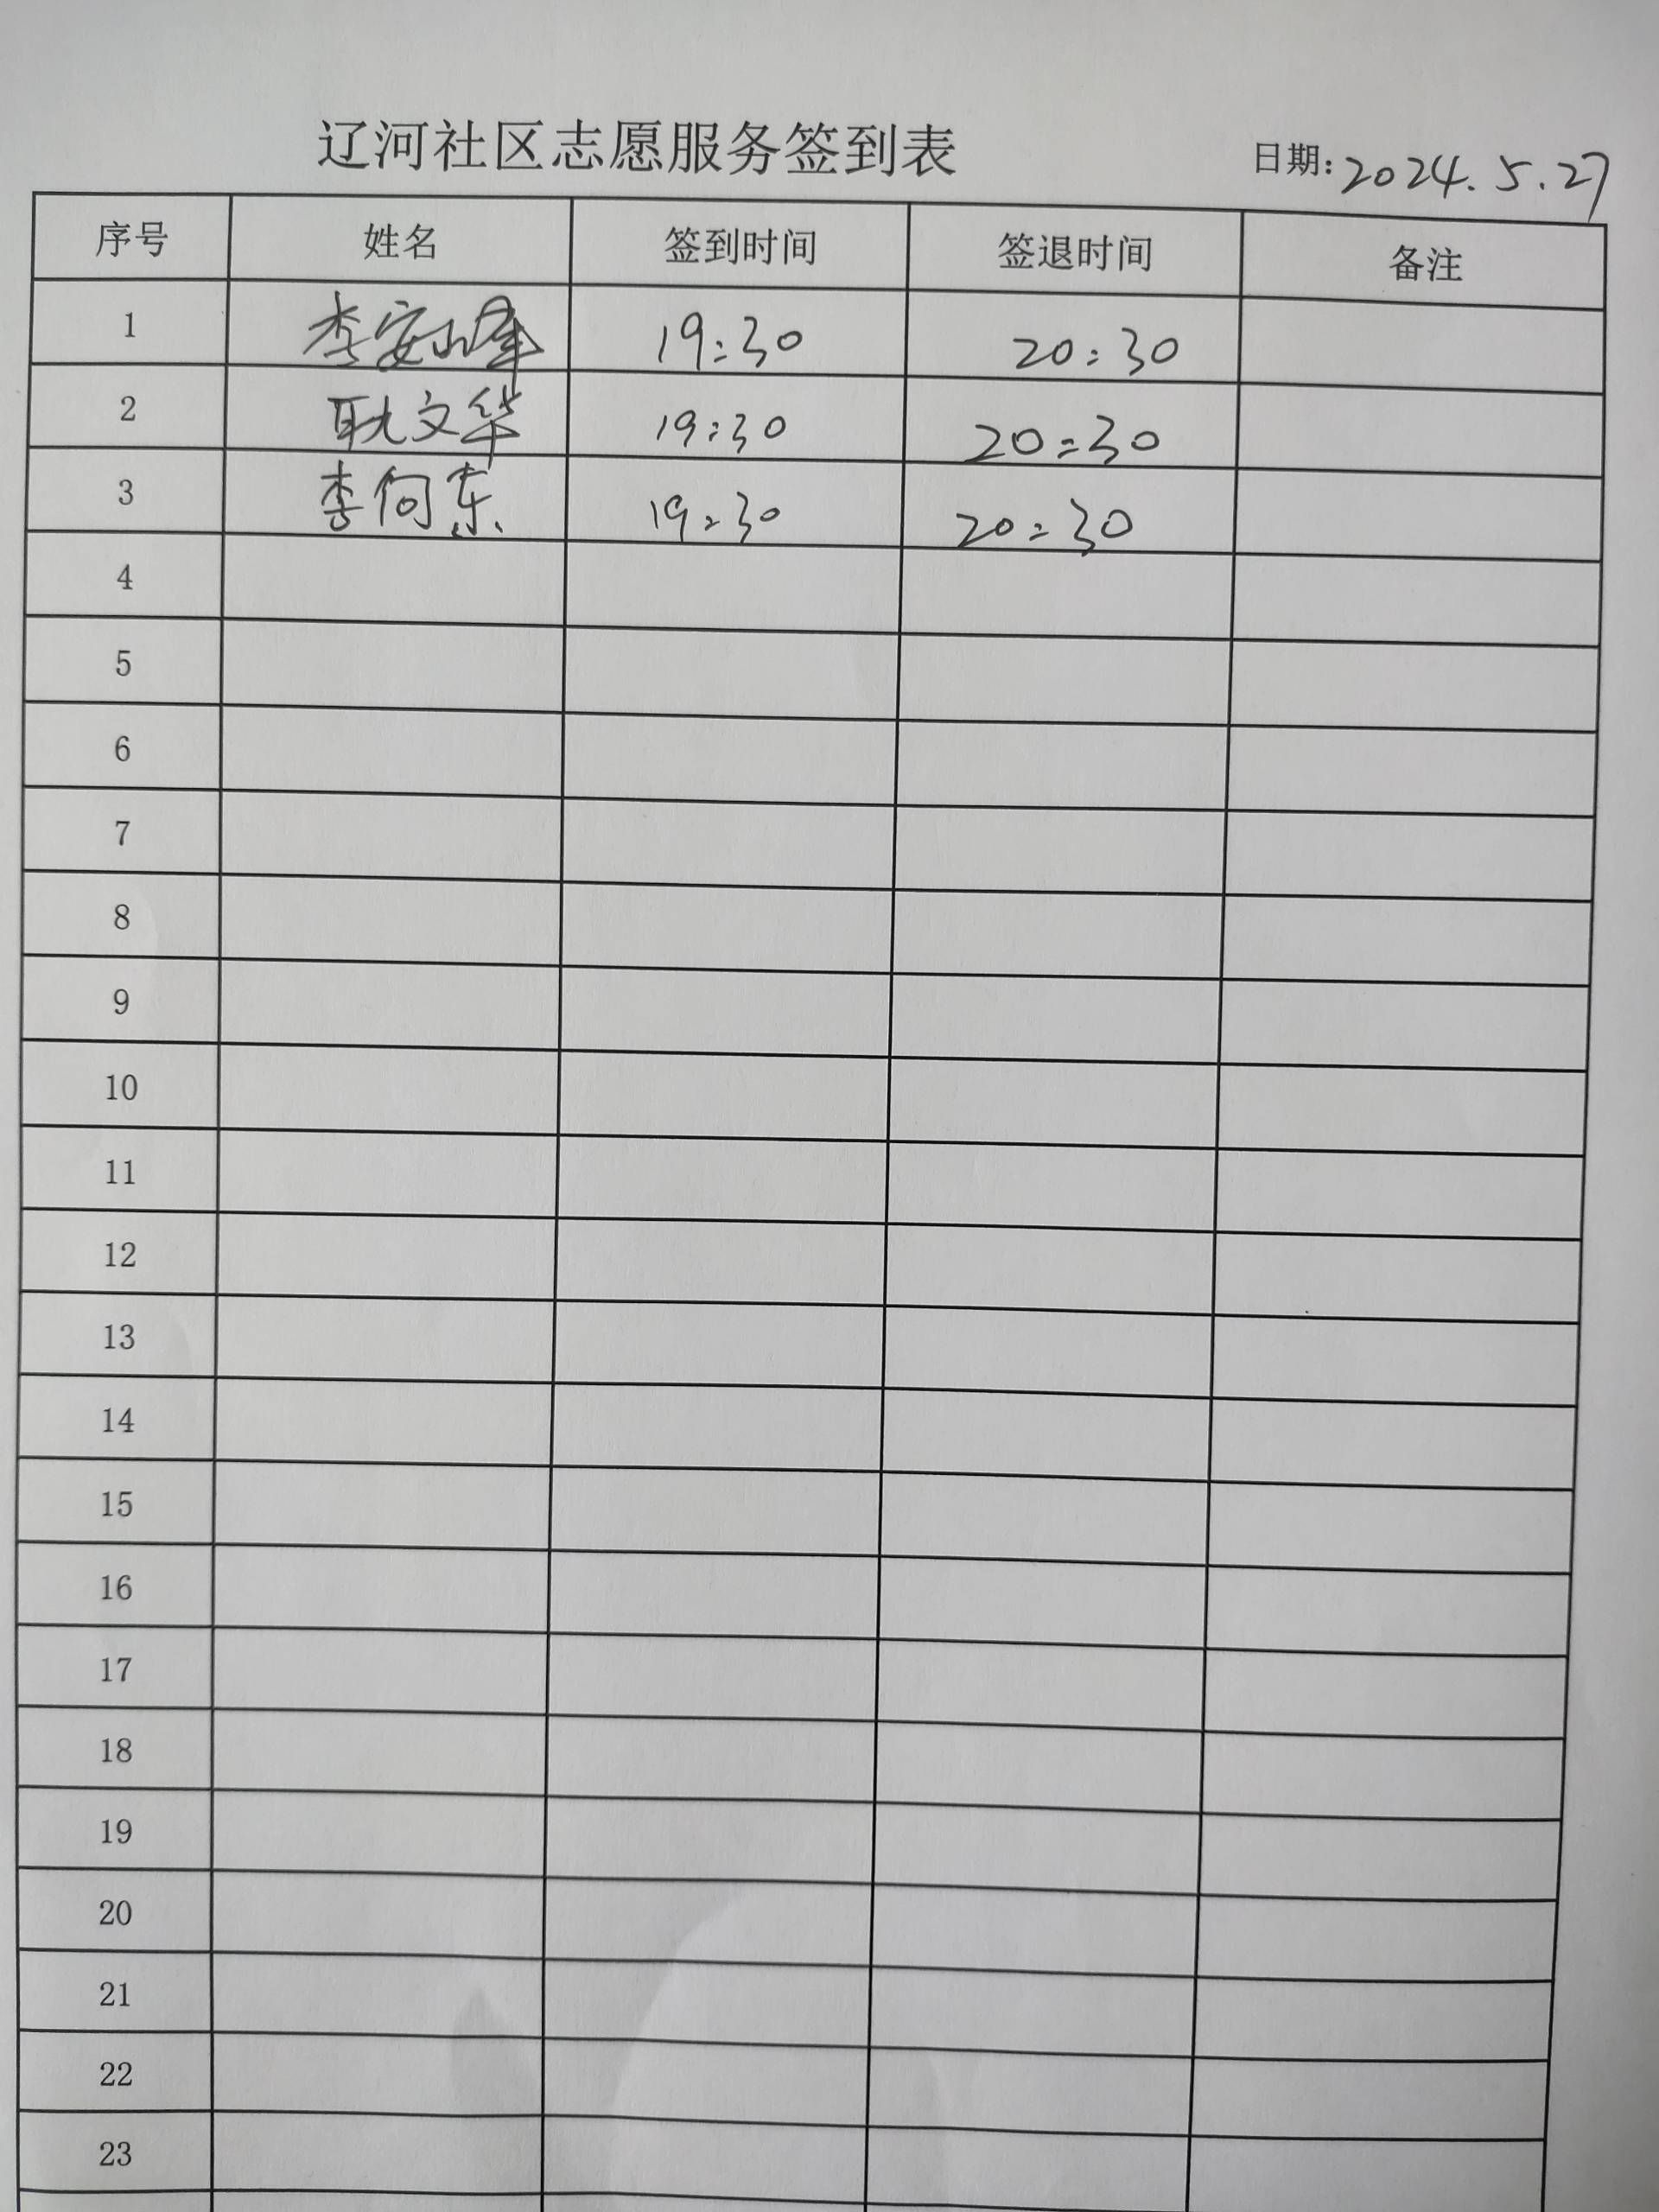 辽河社区志愿服务签到表 日期:2024.5.27
序号 姓名 签到时间 签退时间 备注
1 李安峰 19:30 20:30
2 耿文华 19:30 20:30
3 李向东 19:30 20:30
4
5
6
7
8
9
10
11
12
13
14
15
16
17
18
19
20
21
22
23